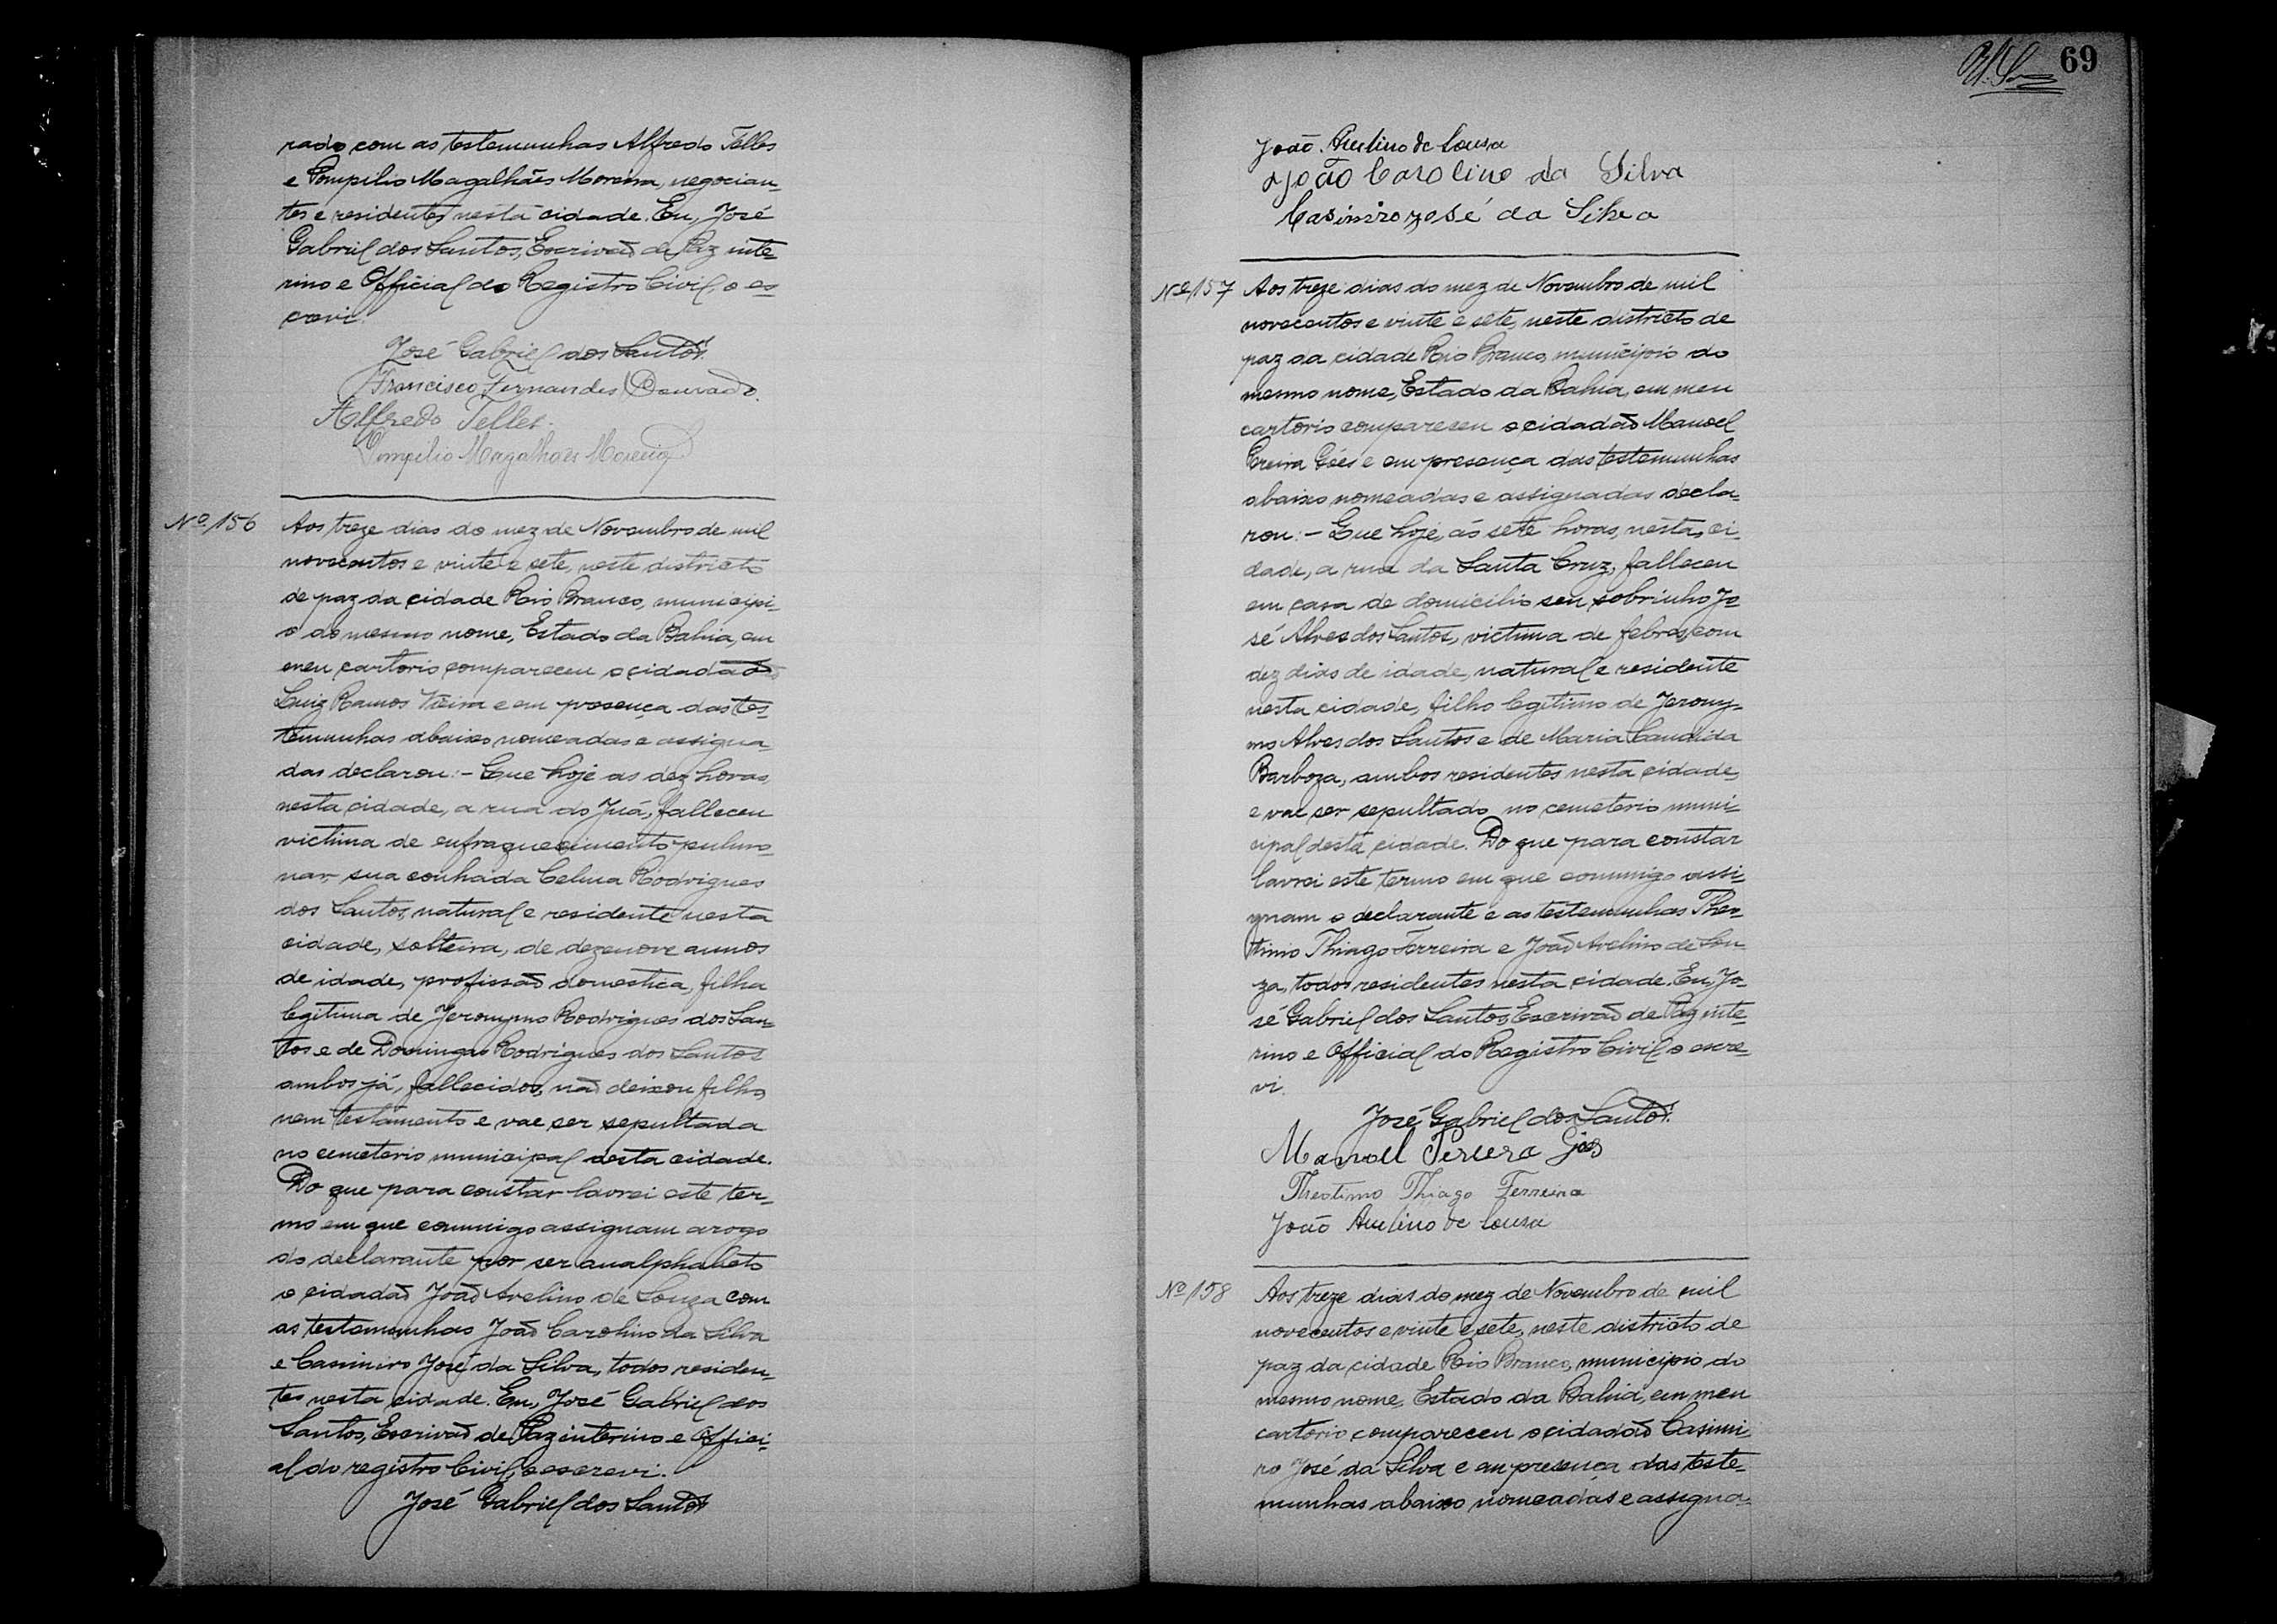 rado com as testemunhas Alfredo Telles
e Pompilio Magalhães Moreira, negocian-
tes e residentes nesta cidade. Eu, José
Gabriel dos Santos, Escrivão de Paz inte-
rino e Official do Registro Civil, o es-
crevi.
José Gabriel dos Santos.
Francisco Fernandes Dourado.
Alfredo Telles.
Pompilio Magalhães Moreira
Nº 156 Aos treze dias do mez de Novembro de mil
novecentos e vinte e sete, neste districto
de paz da cidade Rio Branco, municipi-
o do mesmo nome, Estado da Bahia, em
meu cartorio compareceu o cidadão
Luiz Ramos Vieira e em presença das tes-
temunhas abaixo nomeadas e assigna-
das declarou: - Que hoje as dez horas,
nesta cidade, a rua do Juá, falleceu
victima de enfraquecimento pulmo-
nar, sua cunhada Celina Rodrigues
dos Santos, natural e residente nesta
cidade, solteira, de dezenove annos
de idade, profissão domestica, filha
legitima de Jeronymo Rodrigues dos San-
tos e de Domingas Rodrigues dos Santos
ambos já, fallecidos, não deixou filhos
nem testamento e vae ser sepultada
no cemeterio municipal desta cidade.
Do que para constar lavrei este ter-
mo em que commigo assignam arogo
do declarante por ser analphabeto
o cidadão João Avelino de Souza com
as testemunhas João Carolino da Silva
e Casimiro José da Silva, todos residen-
tes nesta cidade. Eu, José Gabriel dos
Santos, Escrivão de Paz interino e Offici-
al do registro Civil, o escrevi.
José Gabriel dos Santos
69
João Avelino de Sousa
João Carolino da Silva
Casimiro José da Silva
Nº 157 Aos treze dias do mez de Novembro de mil
novecentos e vinte e sete, neste districto de
paz da cidade Rio Branco, municipio do
mesmo nome, Estado da Bahia, em meu
cartorio compareceu o cidadão Manoel
Pereira Góes e em presença das testemunhas
abaixo nomeadas e assignadas decla-
rou: - Que hoje, ás sete horas, nesta, ci-
dade, a rua da Santa Cruz, falleceu
em casa de domicilio seu sobrinho Jo-
sé Alves dos Santos, victima de febres, com
dez dias de idade, natural e residente
nesta cidade, filho legitimo de Jerony-
mo Alves dos Santos e de Maria Candida
Barboza, ambos residentes nesta cidade,
e vae ser sepultado no cemeterio muni-
cipal desta cidade. Do que para constar
lavrei este termo em que commigo assi-
gnam o declarante e as testemunhas Theo-
timo Thiago Ferreira e João Avelino de Sou-
za, todos residentes nesta cidade. Eu, Jo-
sé Gabriel dos Santos, Escrivão de Paz inte-
rino e Official do Registro Civil, o escre-
vi.
José Gabriel dos Santos.
Manoel Pereira Góes
Theotimo Thiago Ferreira
João Avelino de Sousa
Nº 158 Aos treze dias do mez de Novembro de mil
novecentos e vinte e sete, neste districto de
paz da cidade Rio Branco, municipio do
mesmo nome, Estado da Bahia, em meu
cartorio compareceu o cidadão Casimi-
ro José da Silva e em presença das teste-
munhas abaixo nomeadas e assigna-